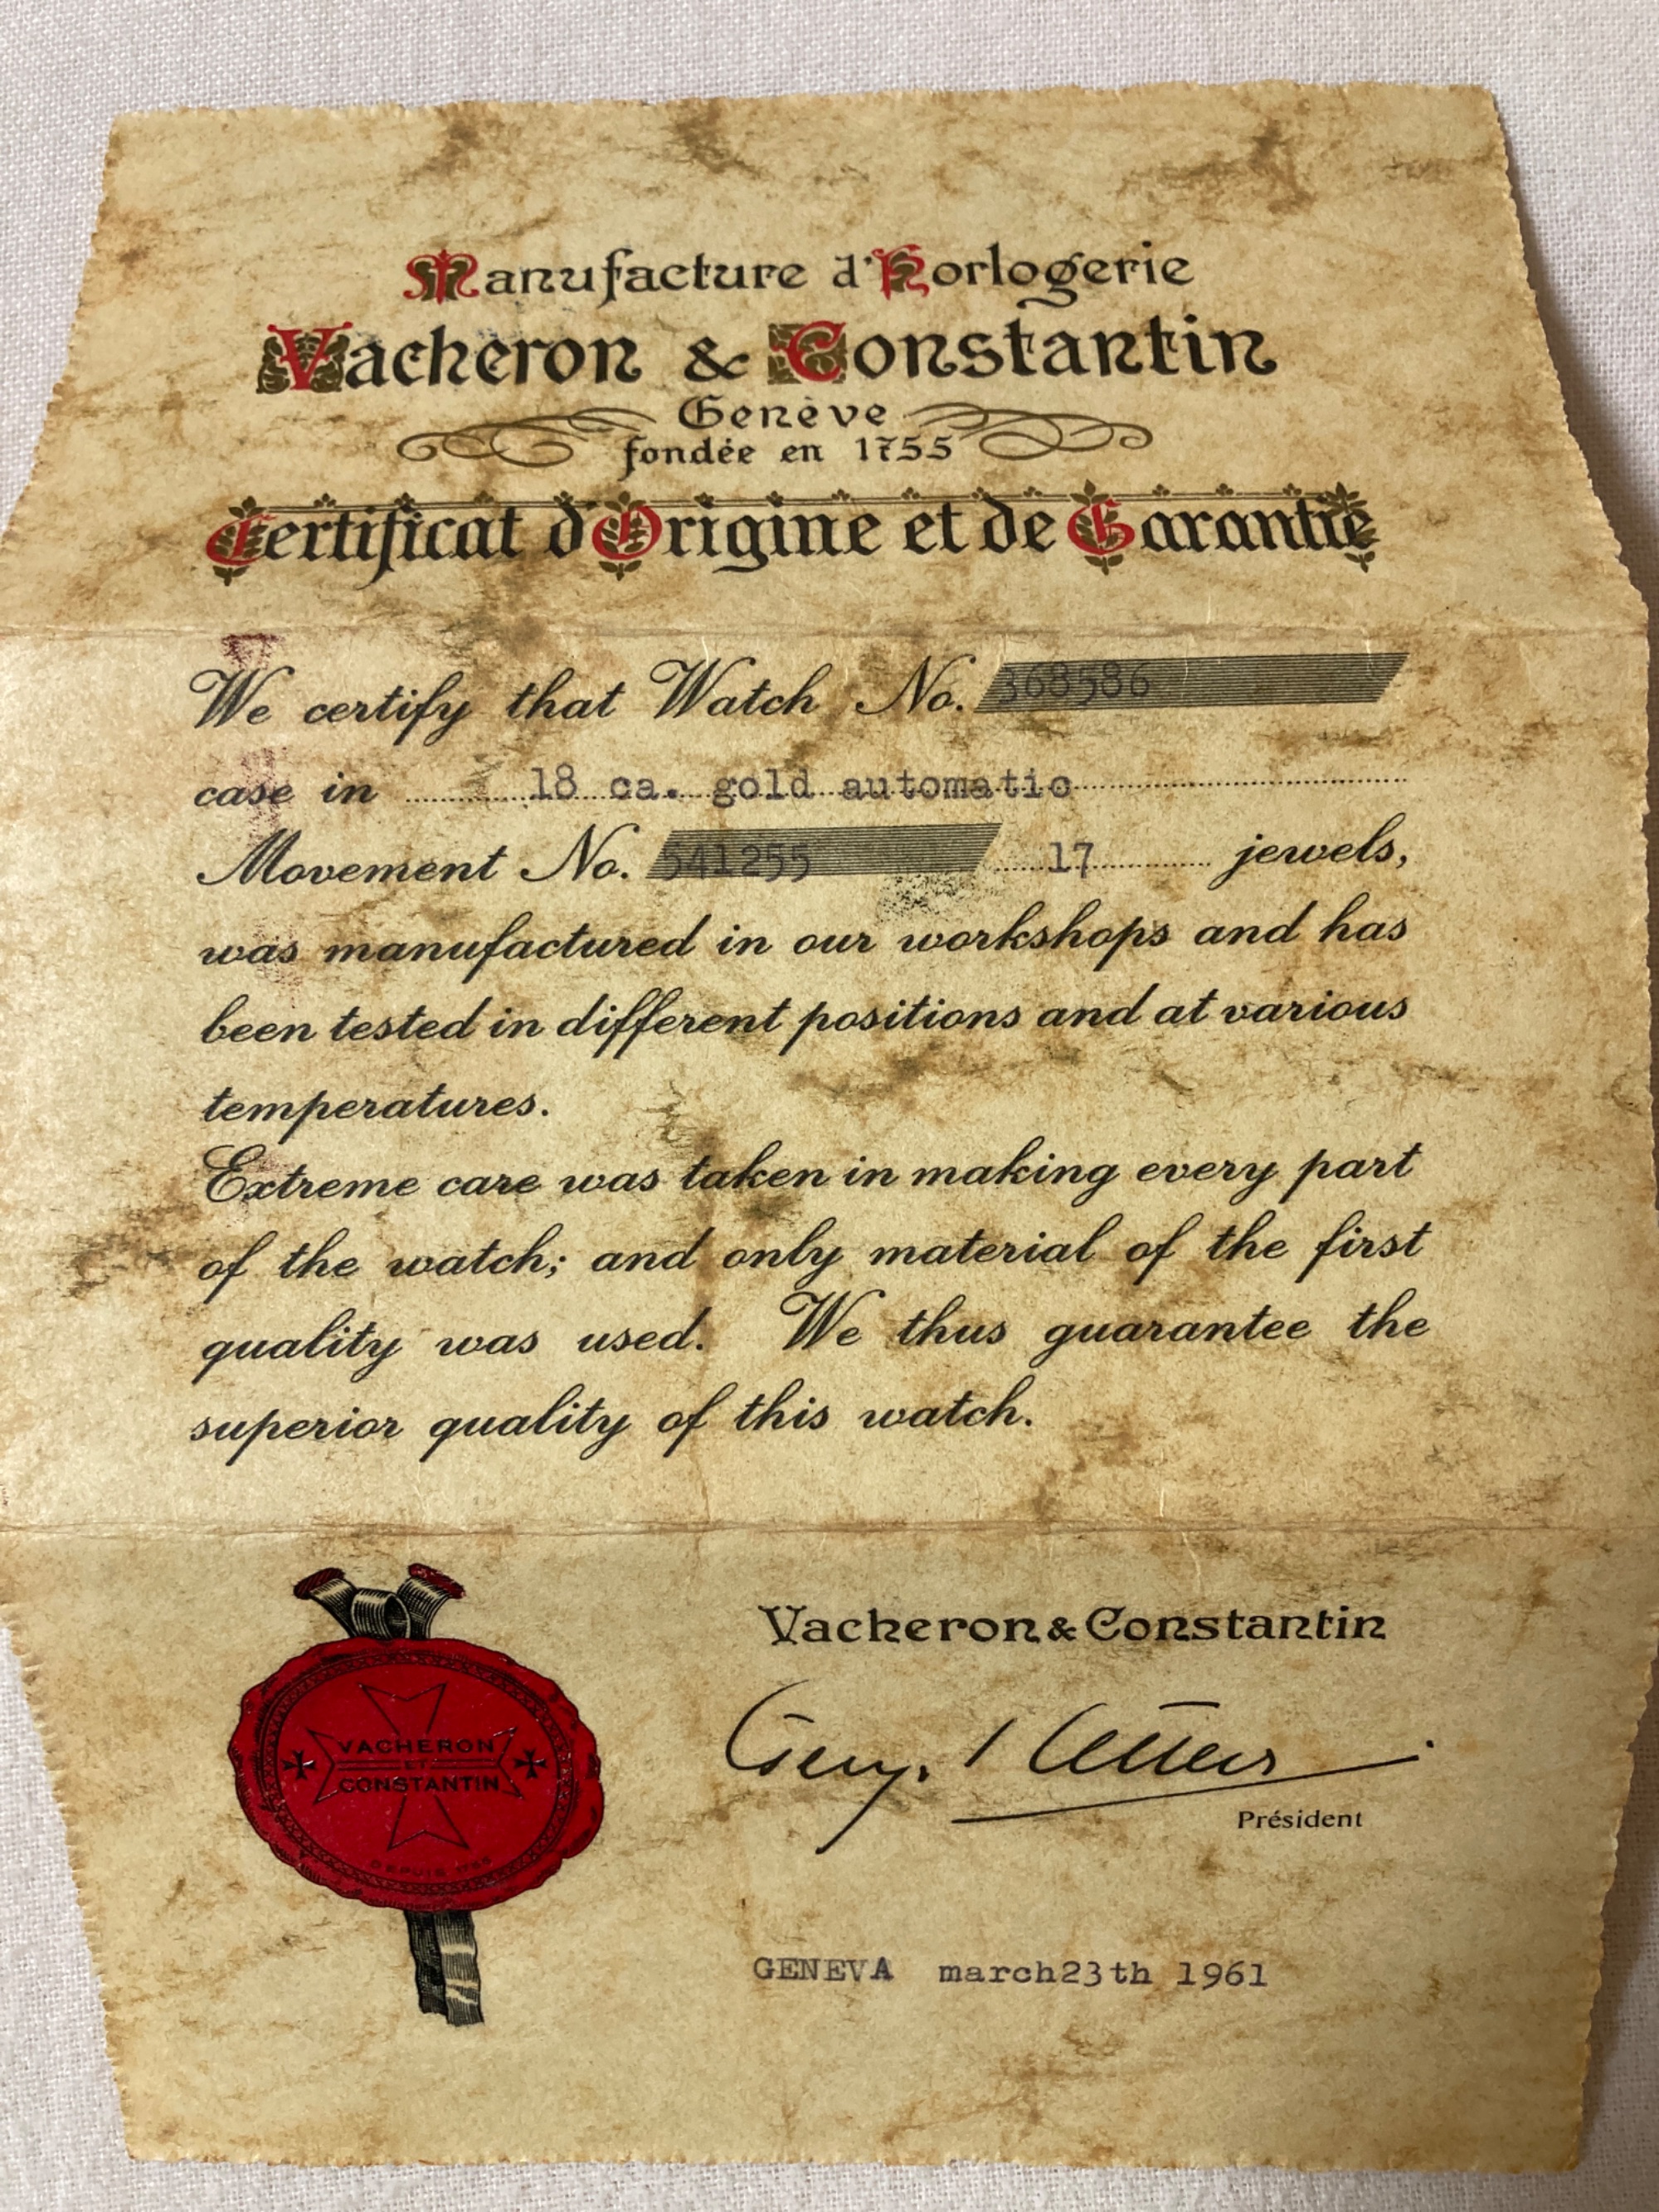 Manufacture d'Horlogerie
Vacheron & Constantin
Genève
fondée en 1755
Certificat d'Origine et de Garantie
We certify that Watch No. 368586
case in 18 ca. gold automatic
Movement No. 541255 17 jewels,
was manufactured in our workshops and has
been tested in different positions and at various
temperatures.
Extreme care was taken in making every part
of the watch; and only material of the first
quality was used. We thus guarantee the
superior quality of this watch.
VACHERON
ET
CONSTANTIN
DEPUIS 1755
Vacheron & Constantin
Président
GENEVA march23th 1961